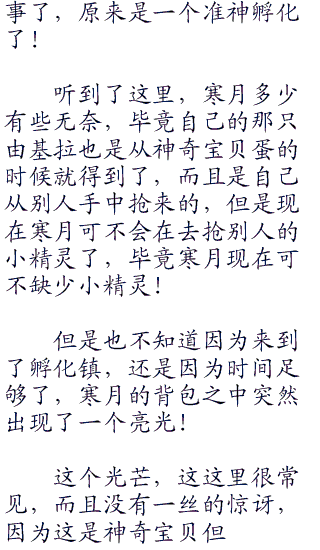 事了，原来是一个准神孵化
了！
听到了这里，寒月多少
有些无奈，毕竟自己的那只
由基拉也是从神奇宝贝蛋的
时候就得到了，而且是自己
从别人手中抢来的，但是现
在寒月可不会在去抢别人的
小精灵了，毕竟寒月现在可
不缺少小精灵！
但是也不知道因为来到
了孵化镇，还是因为时间足
够了，寒月的背包之中突然
出现了一个亮光！
这个光芒，这这里很常
见，而且没有一丝的惊讶，
因为这是神奇宝贝但